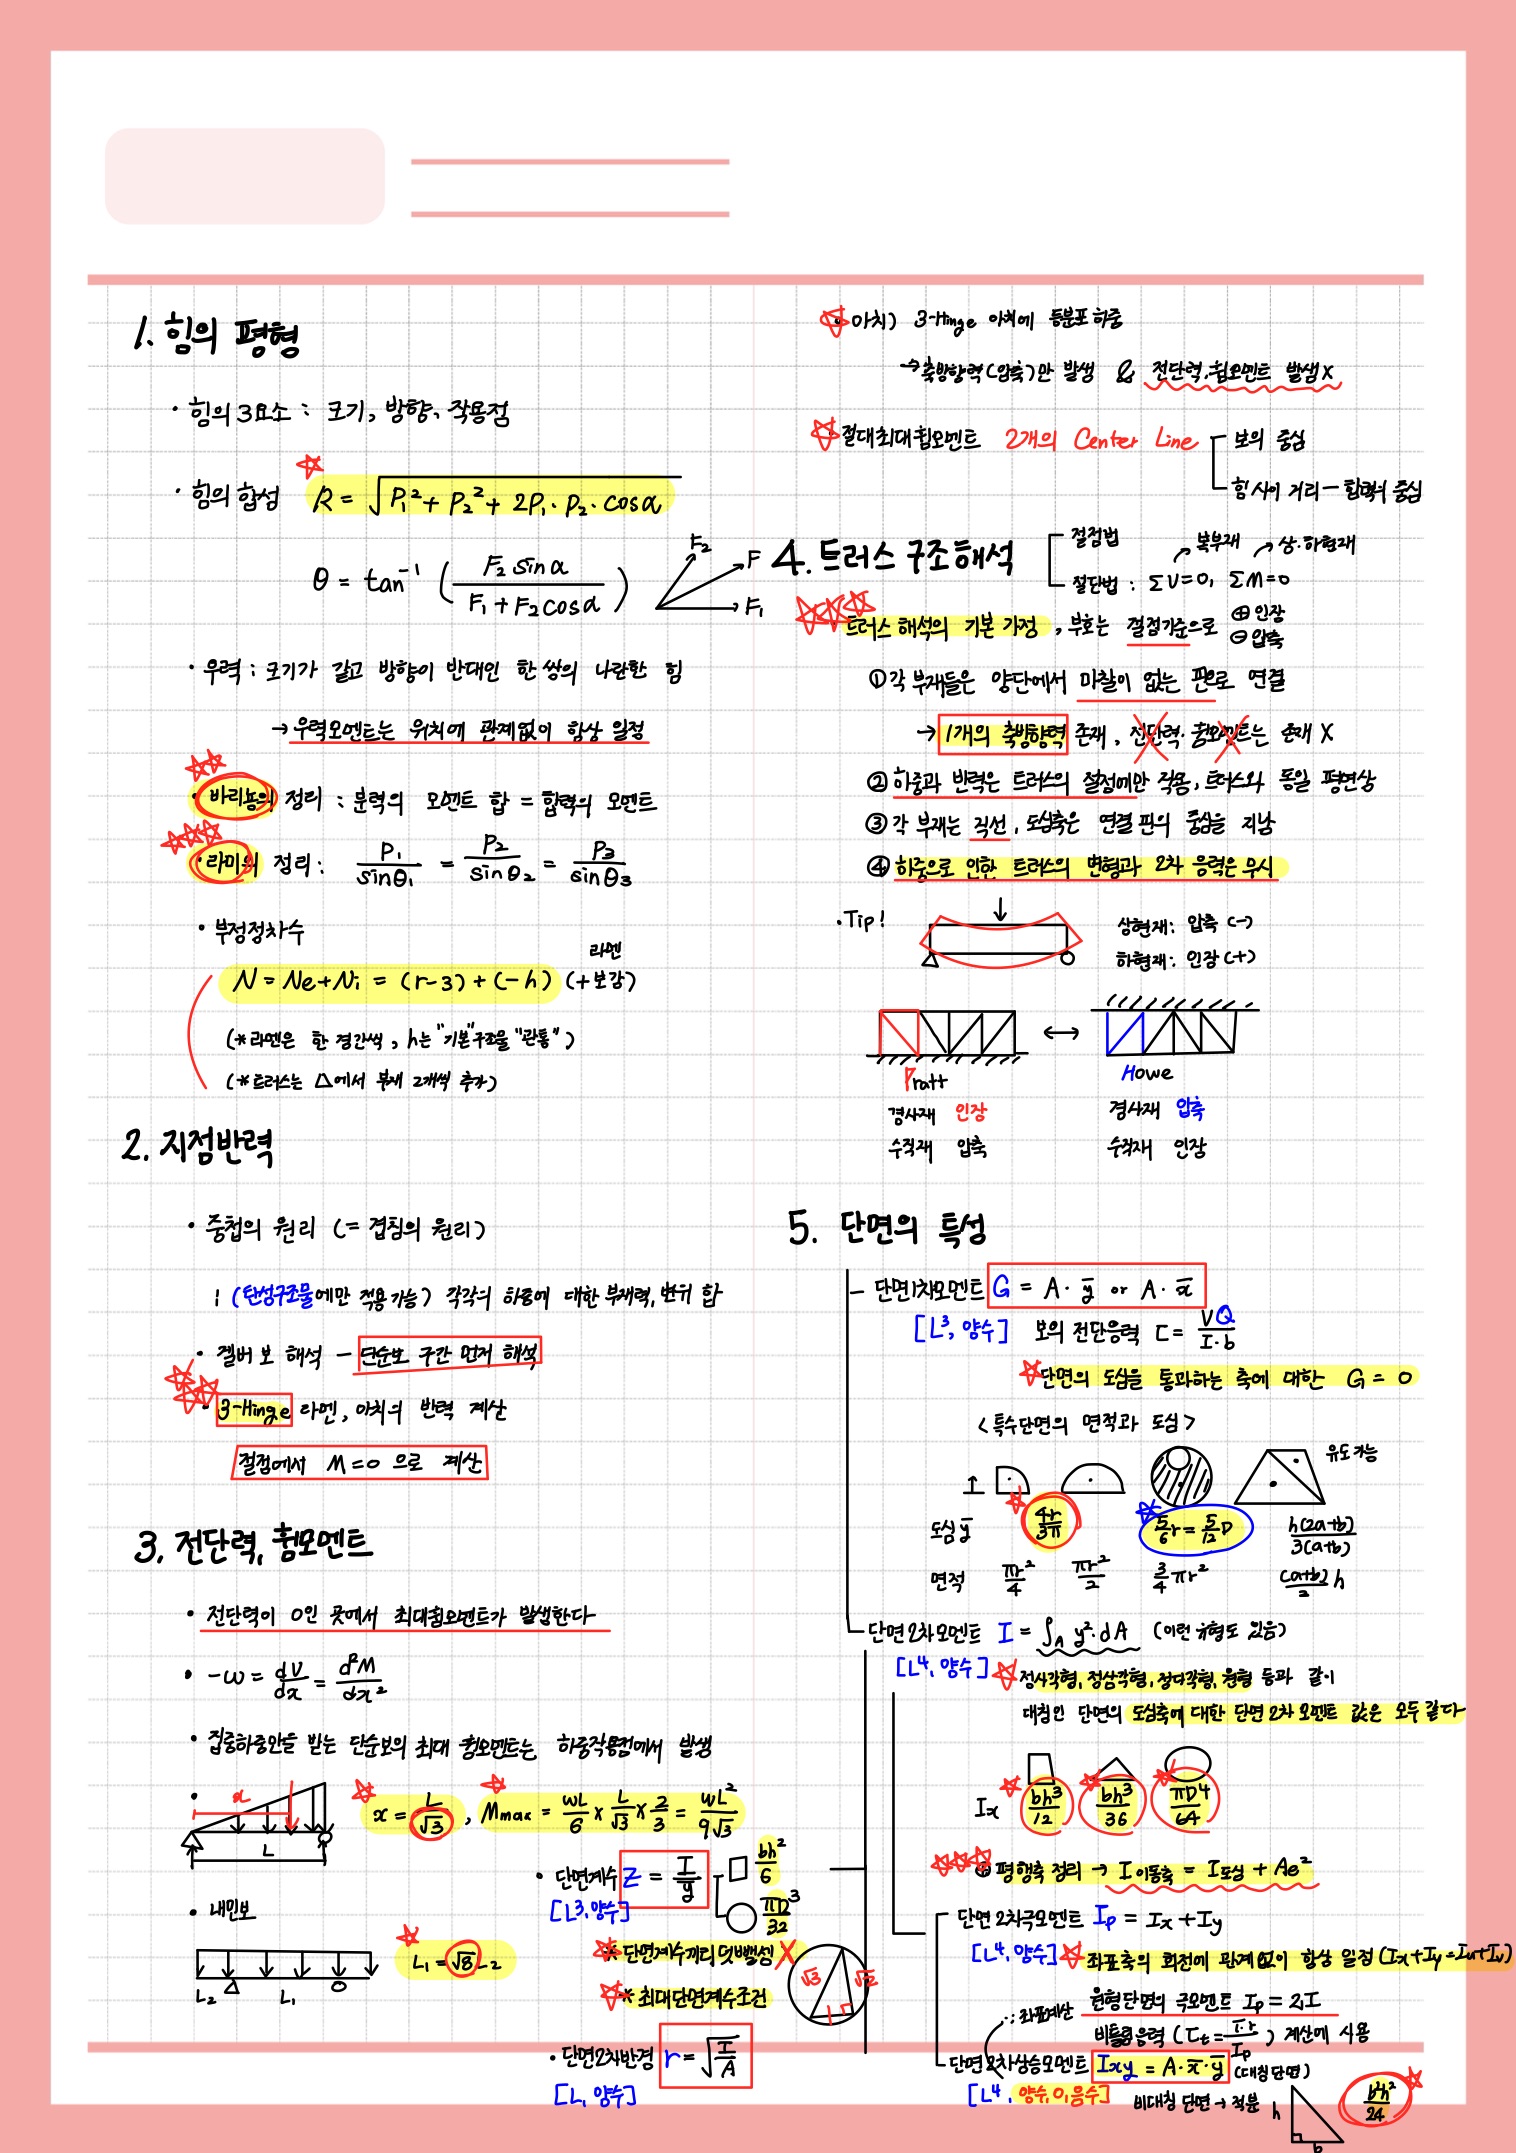 1. 힘의 평형
· 힘의 3요소 : 크기, 방향, 작용점
· 힘의 합성 R = √(P₁² + P₂² + 2P₁·P₂·cosα)
θ = tan⁻¹ (F₂ sinα / F₁ + F₂cosα)
F₂
F
F₁
· 우력 : 크기가 같고 방향이 반대인 한 쌍의 나란한 힘
→ 우력모멘트는 위치에 관계없이 항상 일정
· 바리뇽의 정리 : 분력의 모멘트 합 = 합력의 모멘트
· 라미의 정리 : P₁/sinθ₁ = P₂/sinθ₂ = P₃/sinθ₃
· 부정정차수
라멘
N = Ne+Ni = (r-3) + (-h) (+보강)
(* 라멘은 한 경간씩, h는 "기본"구조물 "관통")
(* 트러스는 △에서 부재 2개씩 추가)
2. 지점반력
· 중첩의 원리 (= 겹침의 원리)
(탄성구조물에만 적용가능) 각각의 하중에 대한 부재력, 변위 합
· 겔버보 해석 - 단순보 구간 먼저 해석
· 3-Hinge 라멘, 아치의 반력 계산
절점에서 M=0 으로 계산
3. 전단력, 휨모멘트
· 전단력이 0인 곳에서 최대휨모멘트가 발생한다
· -w = dV/dx = d²M/dx²
· 집중하중만을 받는 단순보의 최대 휨모멘트는 하중작용점에서 발생
x
L
x = L/√3 , Mmax = wL/6 × L/√3 × 2/3 = wL²/9√3
· 내민보
L₂ L₁
L₁ = √8 L₂
· 단면계수 Z = I/y
[L³, 양수]
bh²/6
πD³/32
* 단면계수끼리 덧뺄셈 X
* 최대단면계수조건
√3 √2 1
· 단면2차반경 r = √(I/A)
[L, 양수]
아치) 3-Hinge 아치에 등분포 하중
→ 축방향력(압축)만 발생 & 전단력·휨모멘트 발생 X
절대최대휨모멘트 2개의 Center Line
보의 중심
힘 사이 거리 - 합력의 중심
4. 트러스 구조해석
절점법
복부재 상·하현재
절단법 : ΣV=0, ΣM=0
트러스 해석의 기본 가정 , 부호는 절점기준으로
⊕ 인장
⊖ 압축
① 각 부재들은 양단에서 마찰이 없는 핀으로 연결
→ 1개의 축방향력 존재 , 전단력·휨모멘트는 존재 X
② 하중과 반력은 트러스의 절점에만 작용, 트러스와 동일 평면상
③ 각 부재는 직선, 도심축은 연결 핀의 중심을 지남
④ 하중으로 인한 트러스의 변형과 2차 응력은 무시
· Tip!
상현재 : 압축 (-)
하현재 : 인장 (+)
Pratt
경사재 인장
수직재 압축
Howe
경사재 압축
수직재 인장
5. 단면의 특성
- 단면1차모멘트 G = A·y̅ or A·x̅
[L³, 양수] 보의 전단응력 τ = VQ/I·b
단면의 도심을 통과하는 축에 대한 G = 0
<특수단면의 면적과 도심>
유도 가능
도심 y̅ 4r/3π 5/6 r = 5/12 D h(2a+b)/3(a+b)
면적 πr²/4 πr²/2 3/4 πr² (a+b)/2 h
단면 2차모멘트 I = ∫A y²·dA (이런 유형도 있음)
[L⁴, 양수]
정사각형, 정삼각형, 정다각형, 원형 등과 같이
대칭인 단면의 도심축에 대한 단면 2차 모멘트 값은 모두 같다
Ix bh³/12 bh³/36 πD⁴/64
평행축 정리 → I이동축 = I도심 + Ae²
단면 2차극모멘트 Ip = Ix + Iy
[L⁴, 양수]
좌표축의 회전에 관계없이 항상 일정 (Ix+Iy=Iu+Iv)
원형단면의 극모멘트 Ip = 2I
∴ 좌표계산
비틀림응력 (τt = T·r/Ip) 계산에 사용
단면2차상승모멘트 Ixy = A·x̅·y̅ (대칭단면)
[L⁴, 양수, 0, 음수]
비대칭 단면 → 적분
h
b
b²h²/24